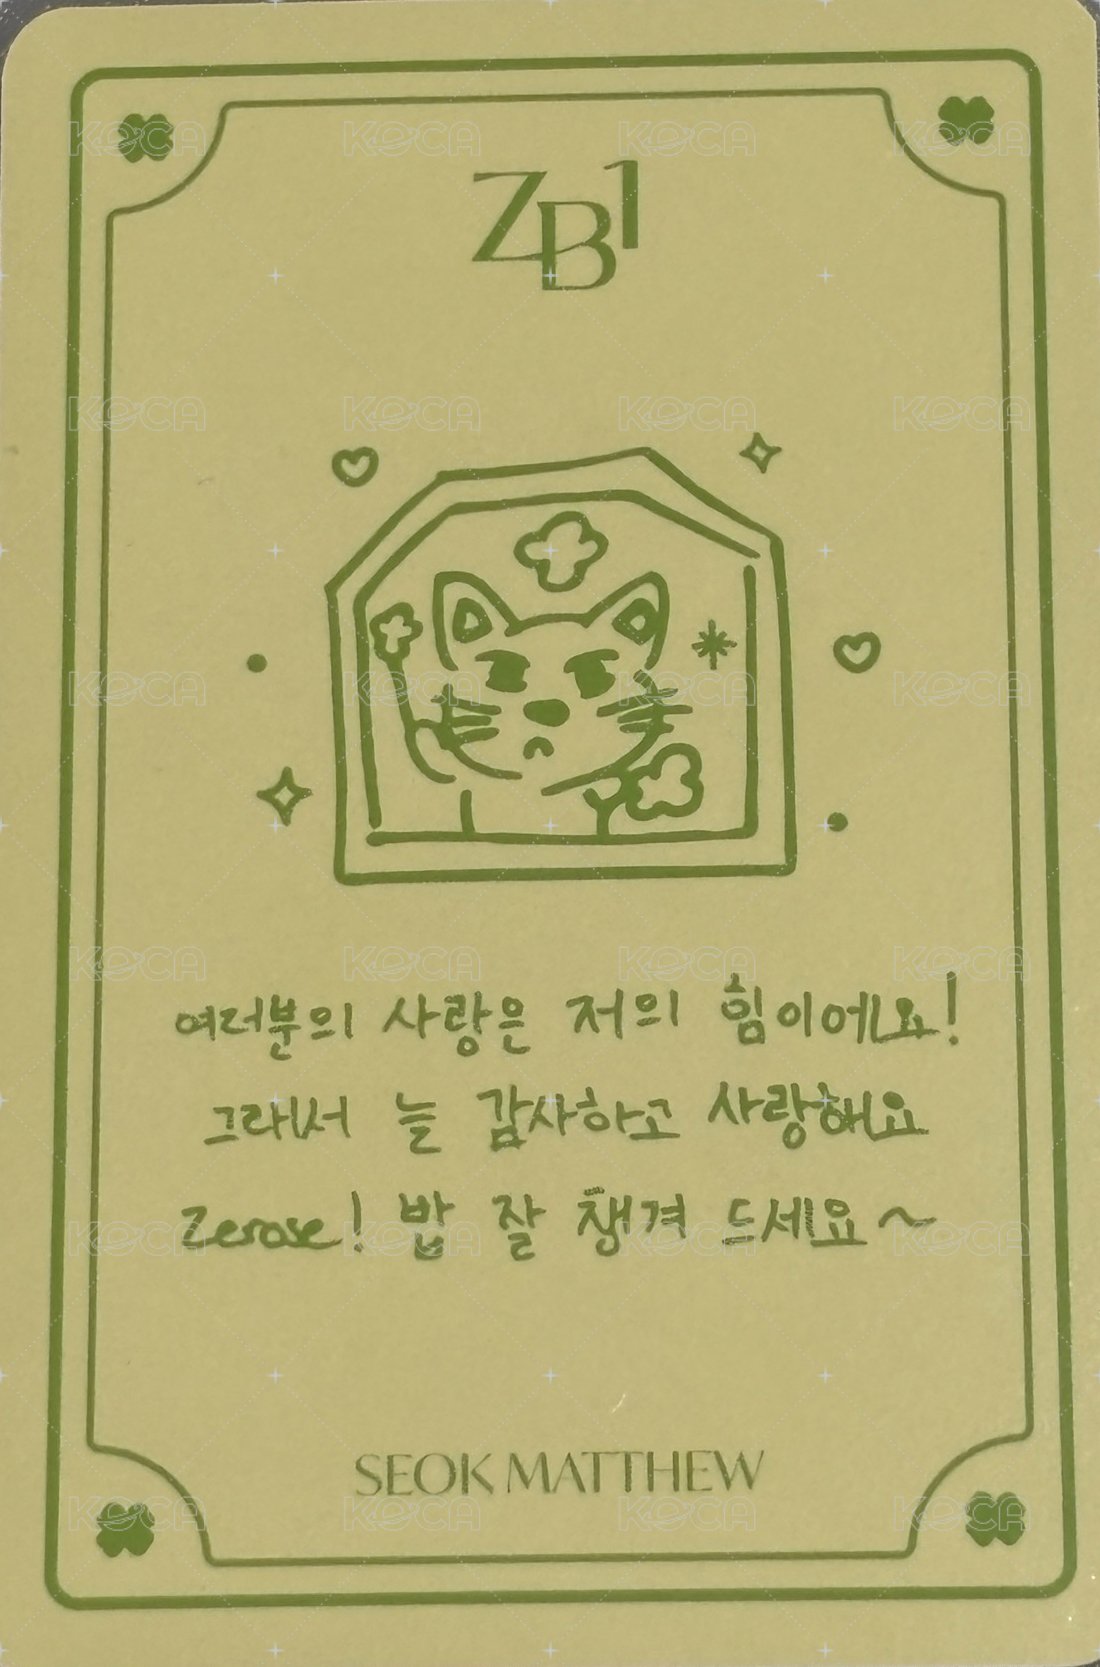 ZB1
여러분의 사랑은 저의 힘이에요!
그래서 늘 감사하고 사랑해요
Zerose! 밥 잘 챙겨 드세요~
SEOK MATTHEW
KOCA